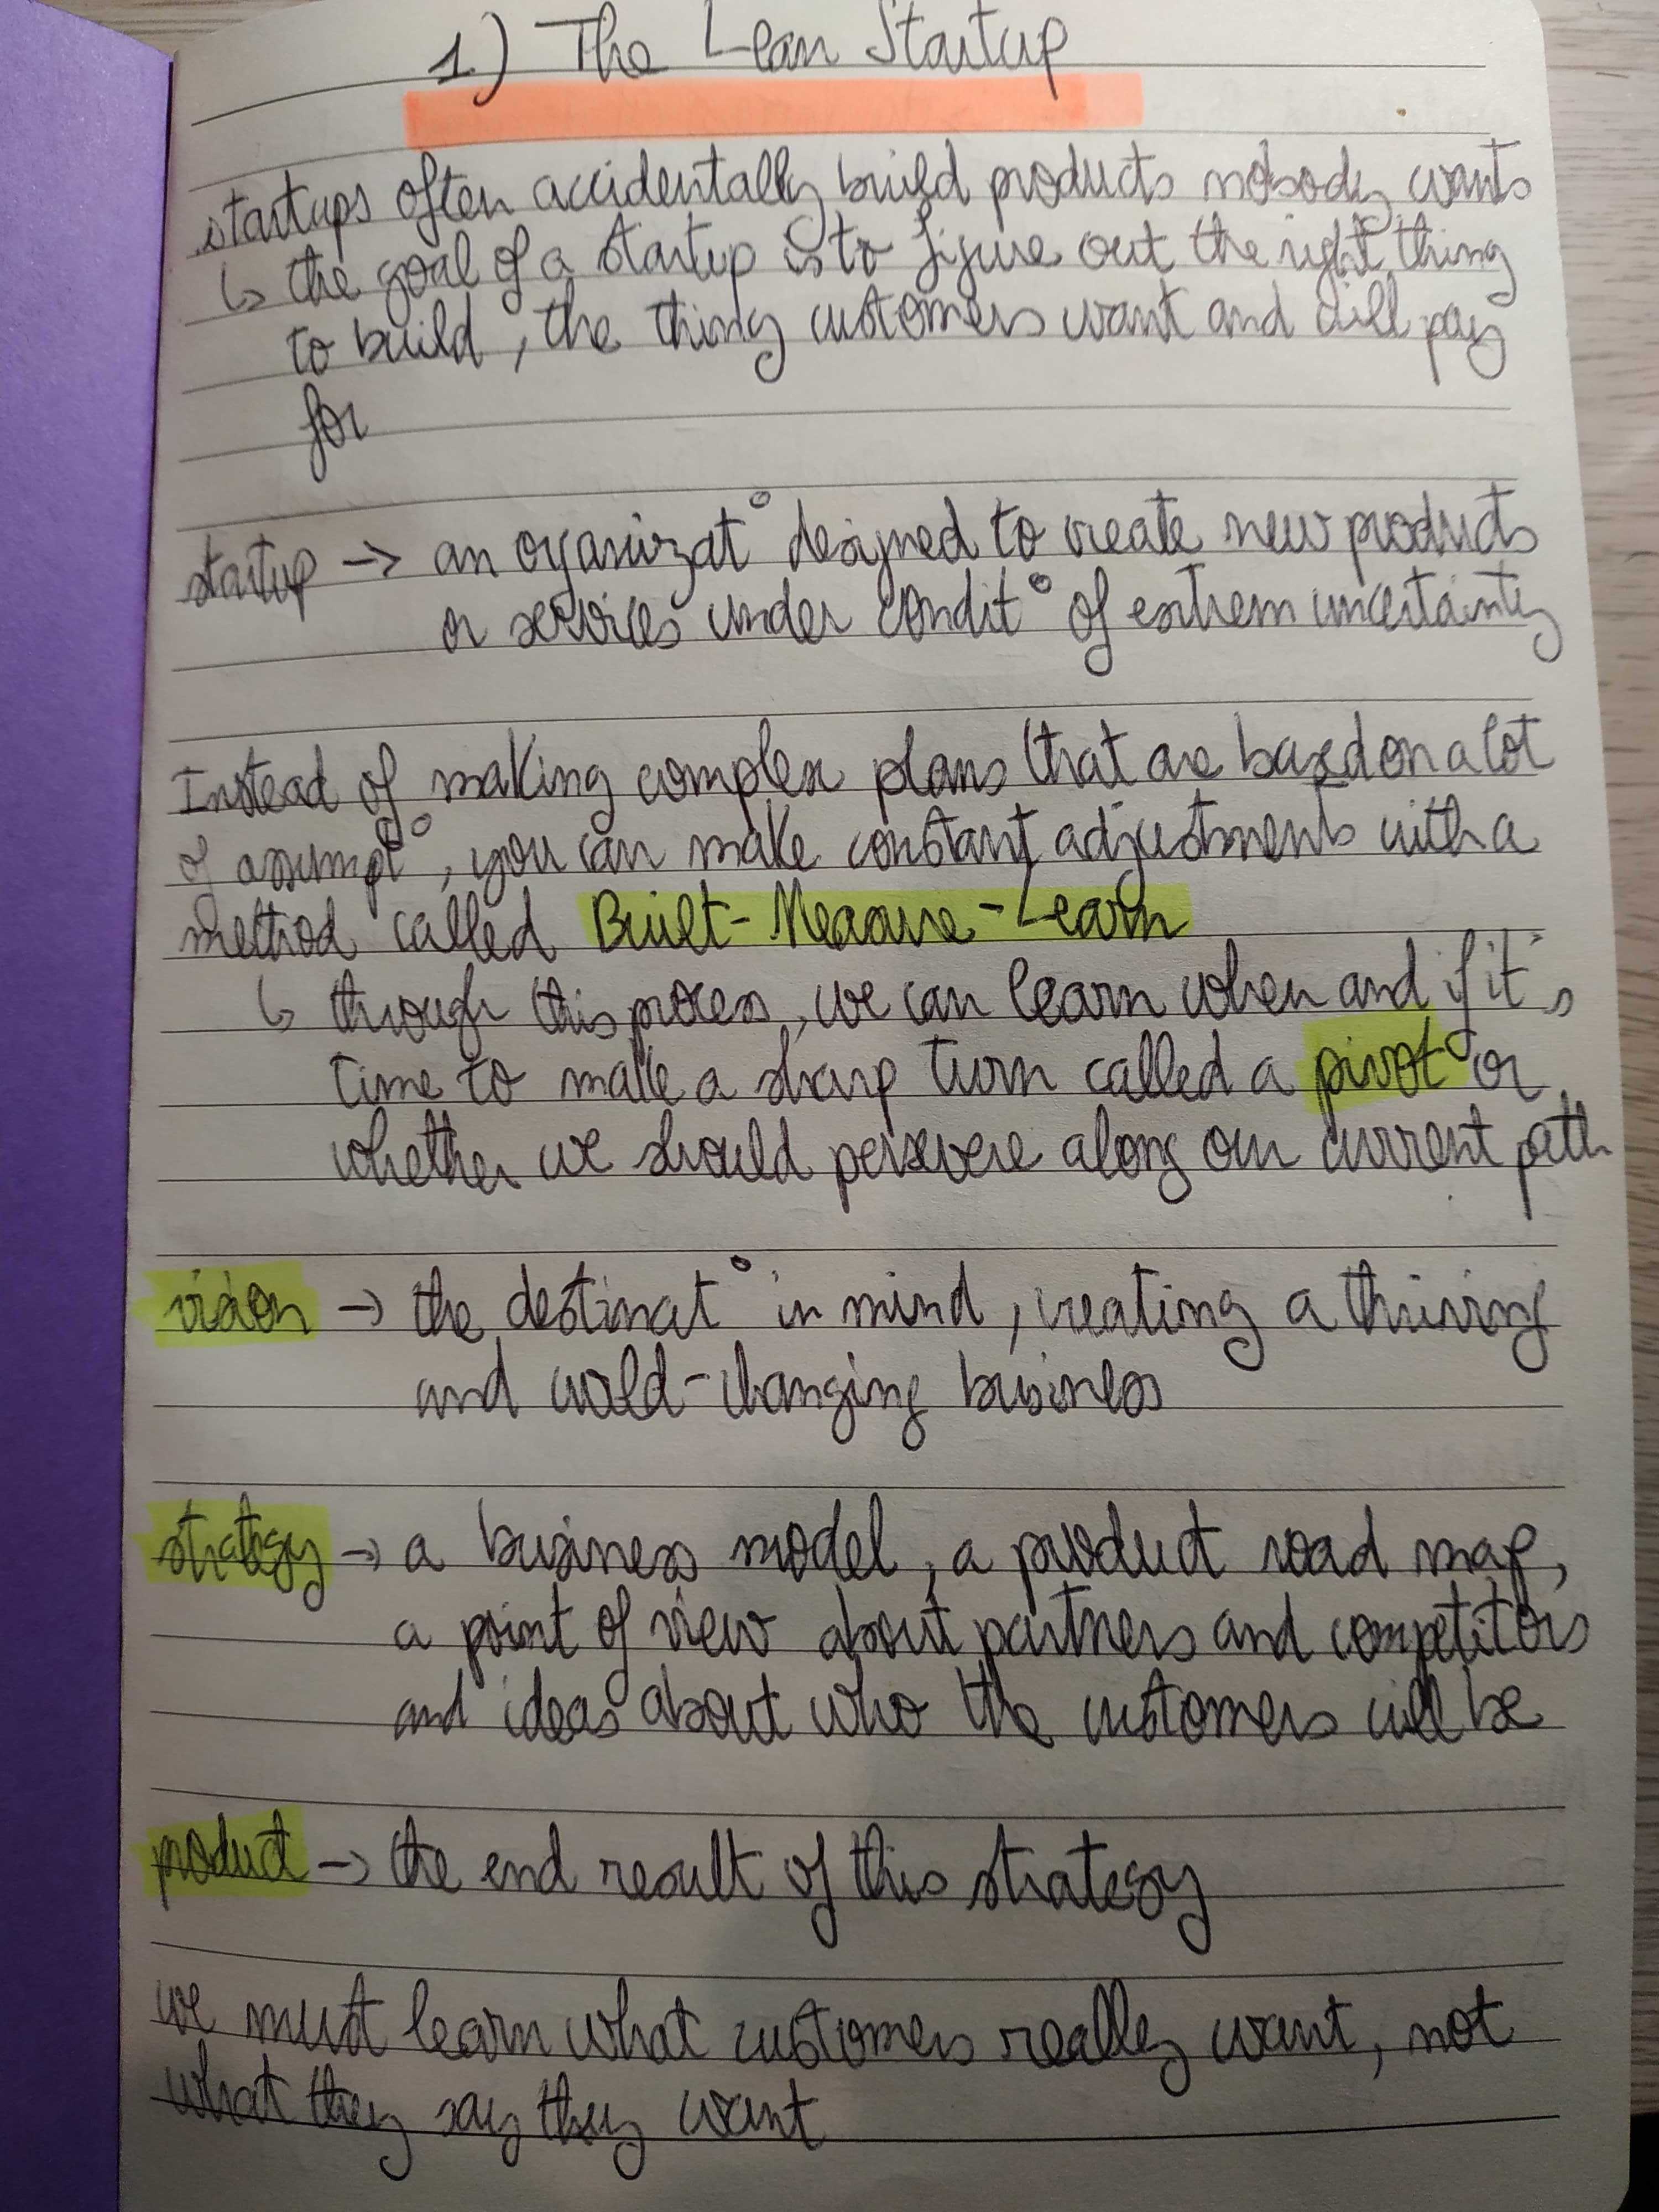 1) The Lean Startup
startups often accidentally build products nobody wants
↳ the goal of a startup is to figure out the right thing
to build, the thing customers want and will pay
for
startup → an organizat° designed to create new products
or services under condit° of extrem uncertainty
Instead of making complex plans that are based on a lot
of assumpt°, you can make constant adjustments with a
method called Built-Measure-Learn
↳ through this process, we can learn when and if it's
time to make a sharp turn called a pivot or
whether we should persevere along our current path
vision → the destinat° in mind, creating a thriving
and world-changing business
strategy → a business model, a product road map,
a point of view about partners and competitors
and ideas about who the customers will be
product → the end result of this strategy
we must learn what customers really want, not
what they say they want